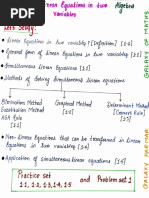 Linear Equations in two variables
Algebra
Let's Study:
• Linear Equations in two variables [Definition] [1.1]
• General form of Linear Equation in two variables [1.2]
• Simultaneous linear Equations [1.1]
• Methods of Solving Simultaneous linear Equations
Elimination Method
Substitution Method
ASA Rule
[1.1]
Graphical Method
[1.2]
Determinant Method
[Cramer's Rule]
[1.3]
• Non-Linear Equations that can be transformed in Linear Equations in two variables [1.4]
• Application of Simultaneous linear Equations [1.5]
Practice set
1.1, 1.2, 1.3, 1.4, 1.5 and Problem set 1
GALAXY OF MATHS
GALAXY PARMAR